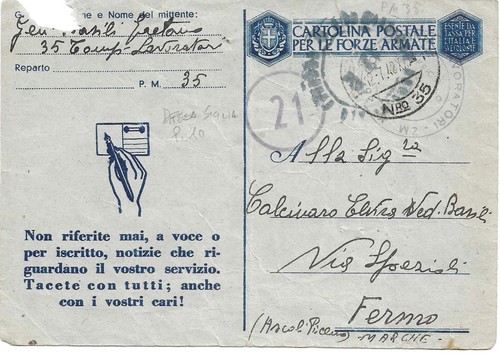 e Nome del mittente:
Gen. Basili Gaetano
35 Comp. Lavoratori
Reparto
P. M. 35
P. 10
Non riferite mai, a voce o
per iscritto, notizie che ri-
guardano il vostro servizio.
Tacete con tutti; anche
con i vostri cari!
P.M. 35
CARTOLINA POSTALE
PER LE FORZE ARMATE
ESENTE DA
TASSA PER
L'ITALIA E
LE COLONIE
Nro 35
ORATORI - 2M
21
Alla Sig ra
Calcinaro Elvira Ved. Basili
Via Spezioli
Fermo
(Ascoli Piceno)
MARCHE